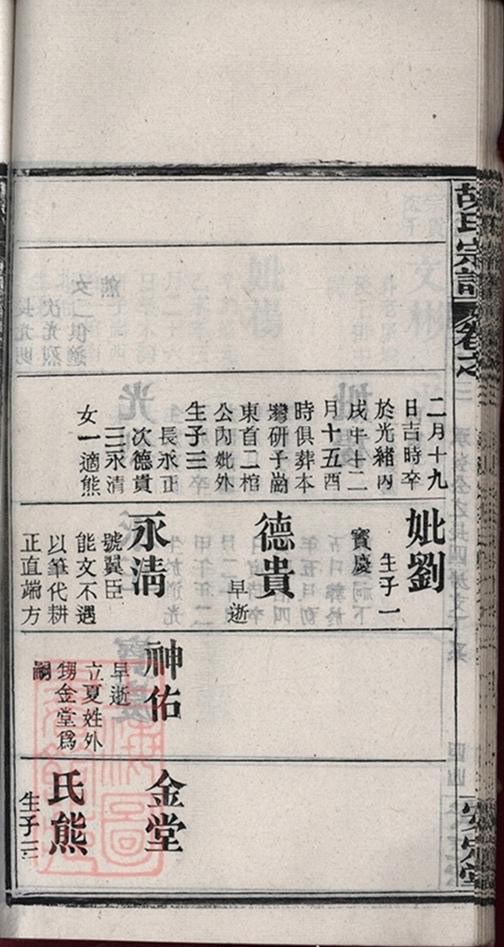 胡氏宗譜
卷之
安定堂
熊
女二俱適
次光烈
長光明
二月十九
日吉時卒
於光緒丙
戌年十二
月十五酉
時俱葬本
灣研子崗
東首二棺
公內妣外
生子三
長永正
次德貴
三永清
女一適熊
妣劉
生子一
寶慶
德貴
早逝
永清
號翼臣
能文不遇
以筆代耕
正直端方
神佑
早逝
立夏姓外
甥金堂爲
嗣
金堂
氏熊
生子三